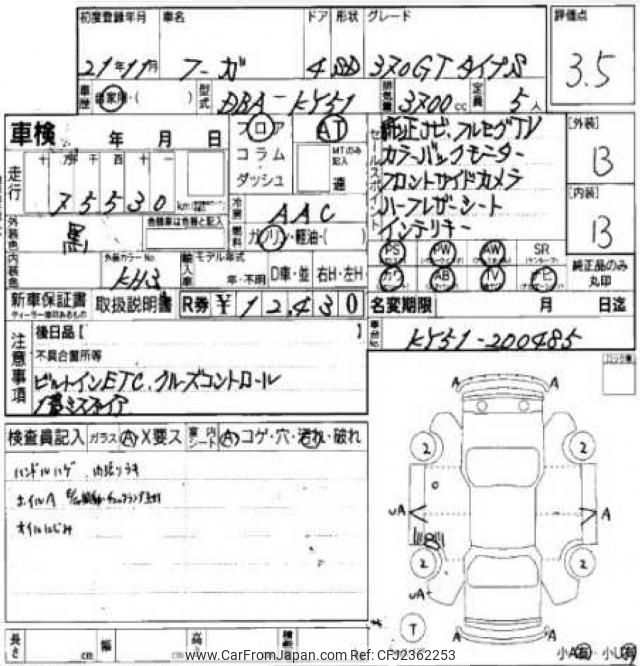 初度登録年月 車名 ドア 形状 グレード 評価点
21年11月 フーガ 4 SD 370GT タイプS 3.5
車歴 自家用・( ) 型式 DBA-KY51 排気量 3700cc 定員 5人
車検 年 月 日
フロア AT
コラム
ダッシュ
MTのみ記入
速
セールスポイント
純正ナビ、フルセグTV
カラーバックモニター
フロントサイドカメラ
ハーフレザーシート
インテリキー
[外装] B
[内装] B
走行 十 万 千 百 十 一
75530 km
冷房 AAC
燃料 ガソリン・軽油・( )
外装色 黒
色替車は色替と記入
内装色
外装カラーNo KH3
輸入車 モデル年式 年・不明 D車・並 右H・左H
PS PW AW SR
カワ AB TV ナビ
純正品のみ丸印
新車保証書 取扱説明書 R券 ¥ 12,430
ディーラー印のあるもの
名変期限 月 日迄
車台No. KY51-200485
注意事項
後日品【
不具合箇所等
ビルトインETC、クルーズコントロール
1番ミスファイア
検査員記入 ガラス A X要ス 室内シート A コゲ・穴・汚れ・破れ
ハンドルハゲ 内張りキ
ホイルA
オイルにじみ
A A
2 2
UA A
2 2
UA
T
A A
長さ cm 幅 cm 高さ cm
小A 小U
www.CarFromJapan.com Ref: CFJ2362253